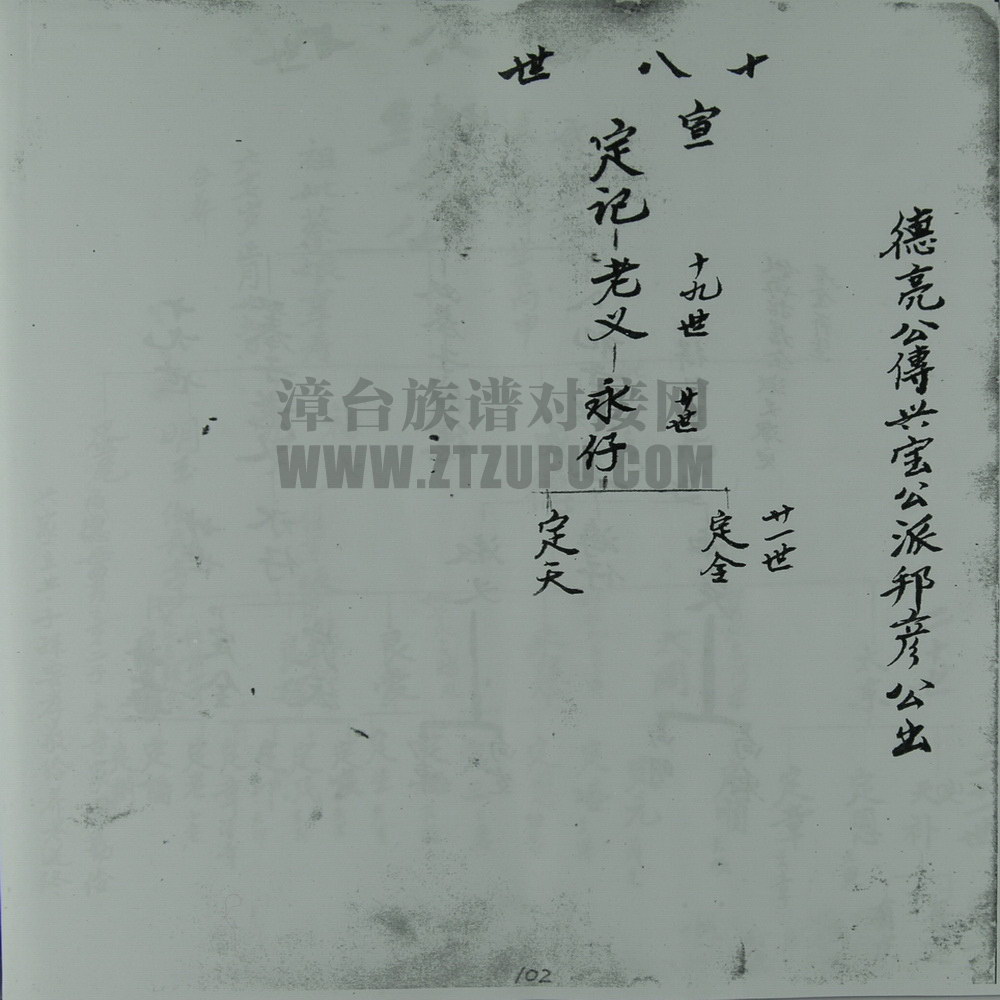 德亮公傳兴宝公派邦彦公出
十八世
宣
定记
老义
永仔
十九世
廿世
廿一世
定全
定天
漳台族谱对接网
WWW.ZTZUPU.COM
102